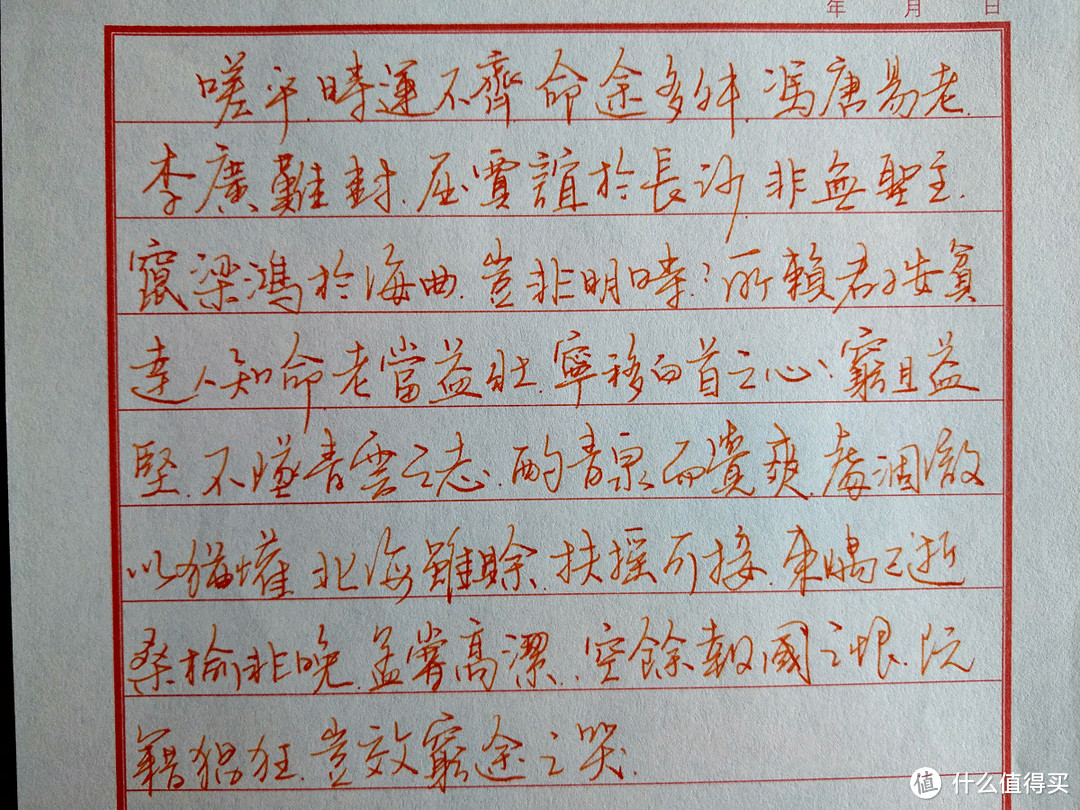 年 月 日
嗟乎.時運不齊.命途多舛.馮唐易老.
李廣難封.屈賈誼於長沙.非無聖主.
竄梁鴻於海曲.豈非明時?所賴君子安貧
達人知命.老當益壯.寧移白首之心.窮且益
堅.不墜青雲之志.酌青泉而覺爽.處涸轍
以猶懽 北海雖賒.扶搖可接.東隅已逝
桑榆非晚.孟嘗高潔.空餘報國之恨.阮
籍猖狂.豈效窮途之哭.
值 什么值得买